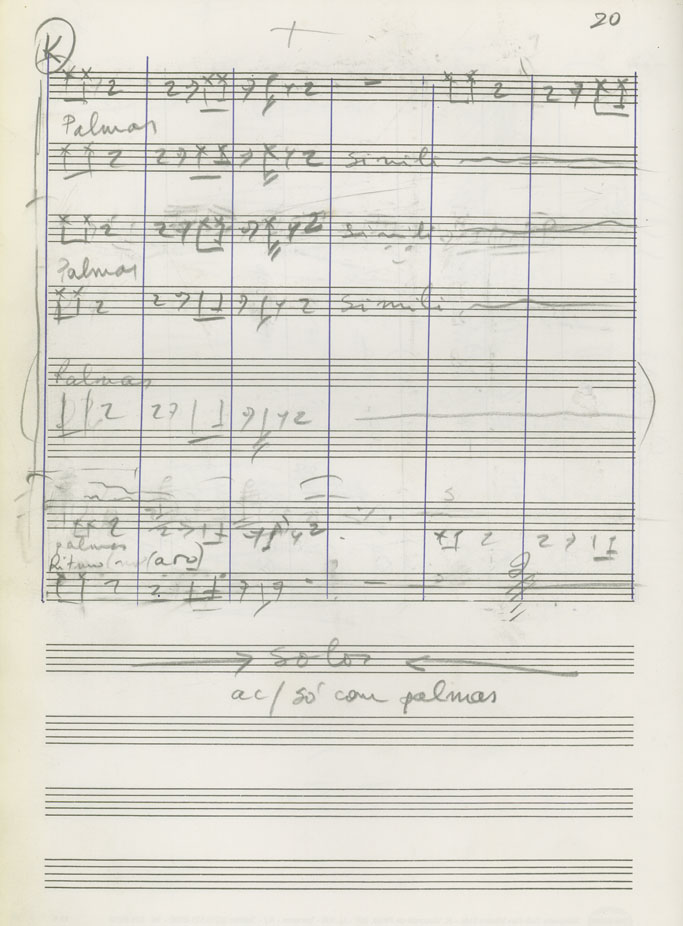 20
K
Palmas
simili
simili
Palmas
simili
Palmas
palmas
Ritmo (aro)
solos
ac/ só com palmas